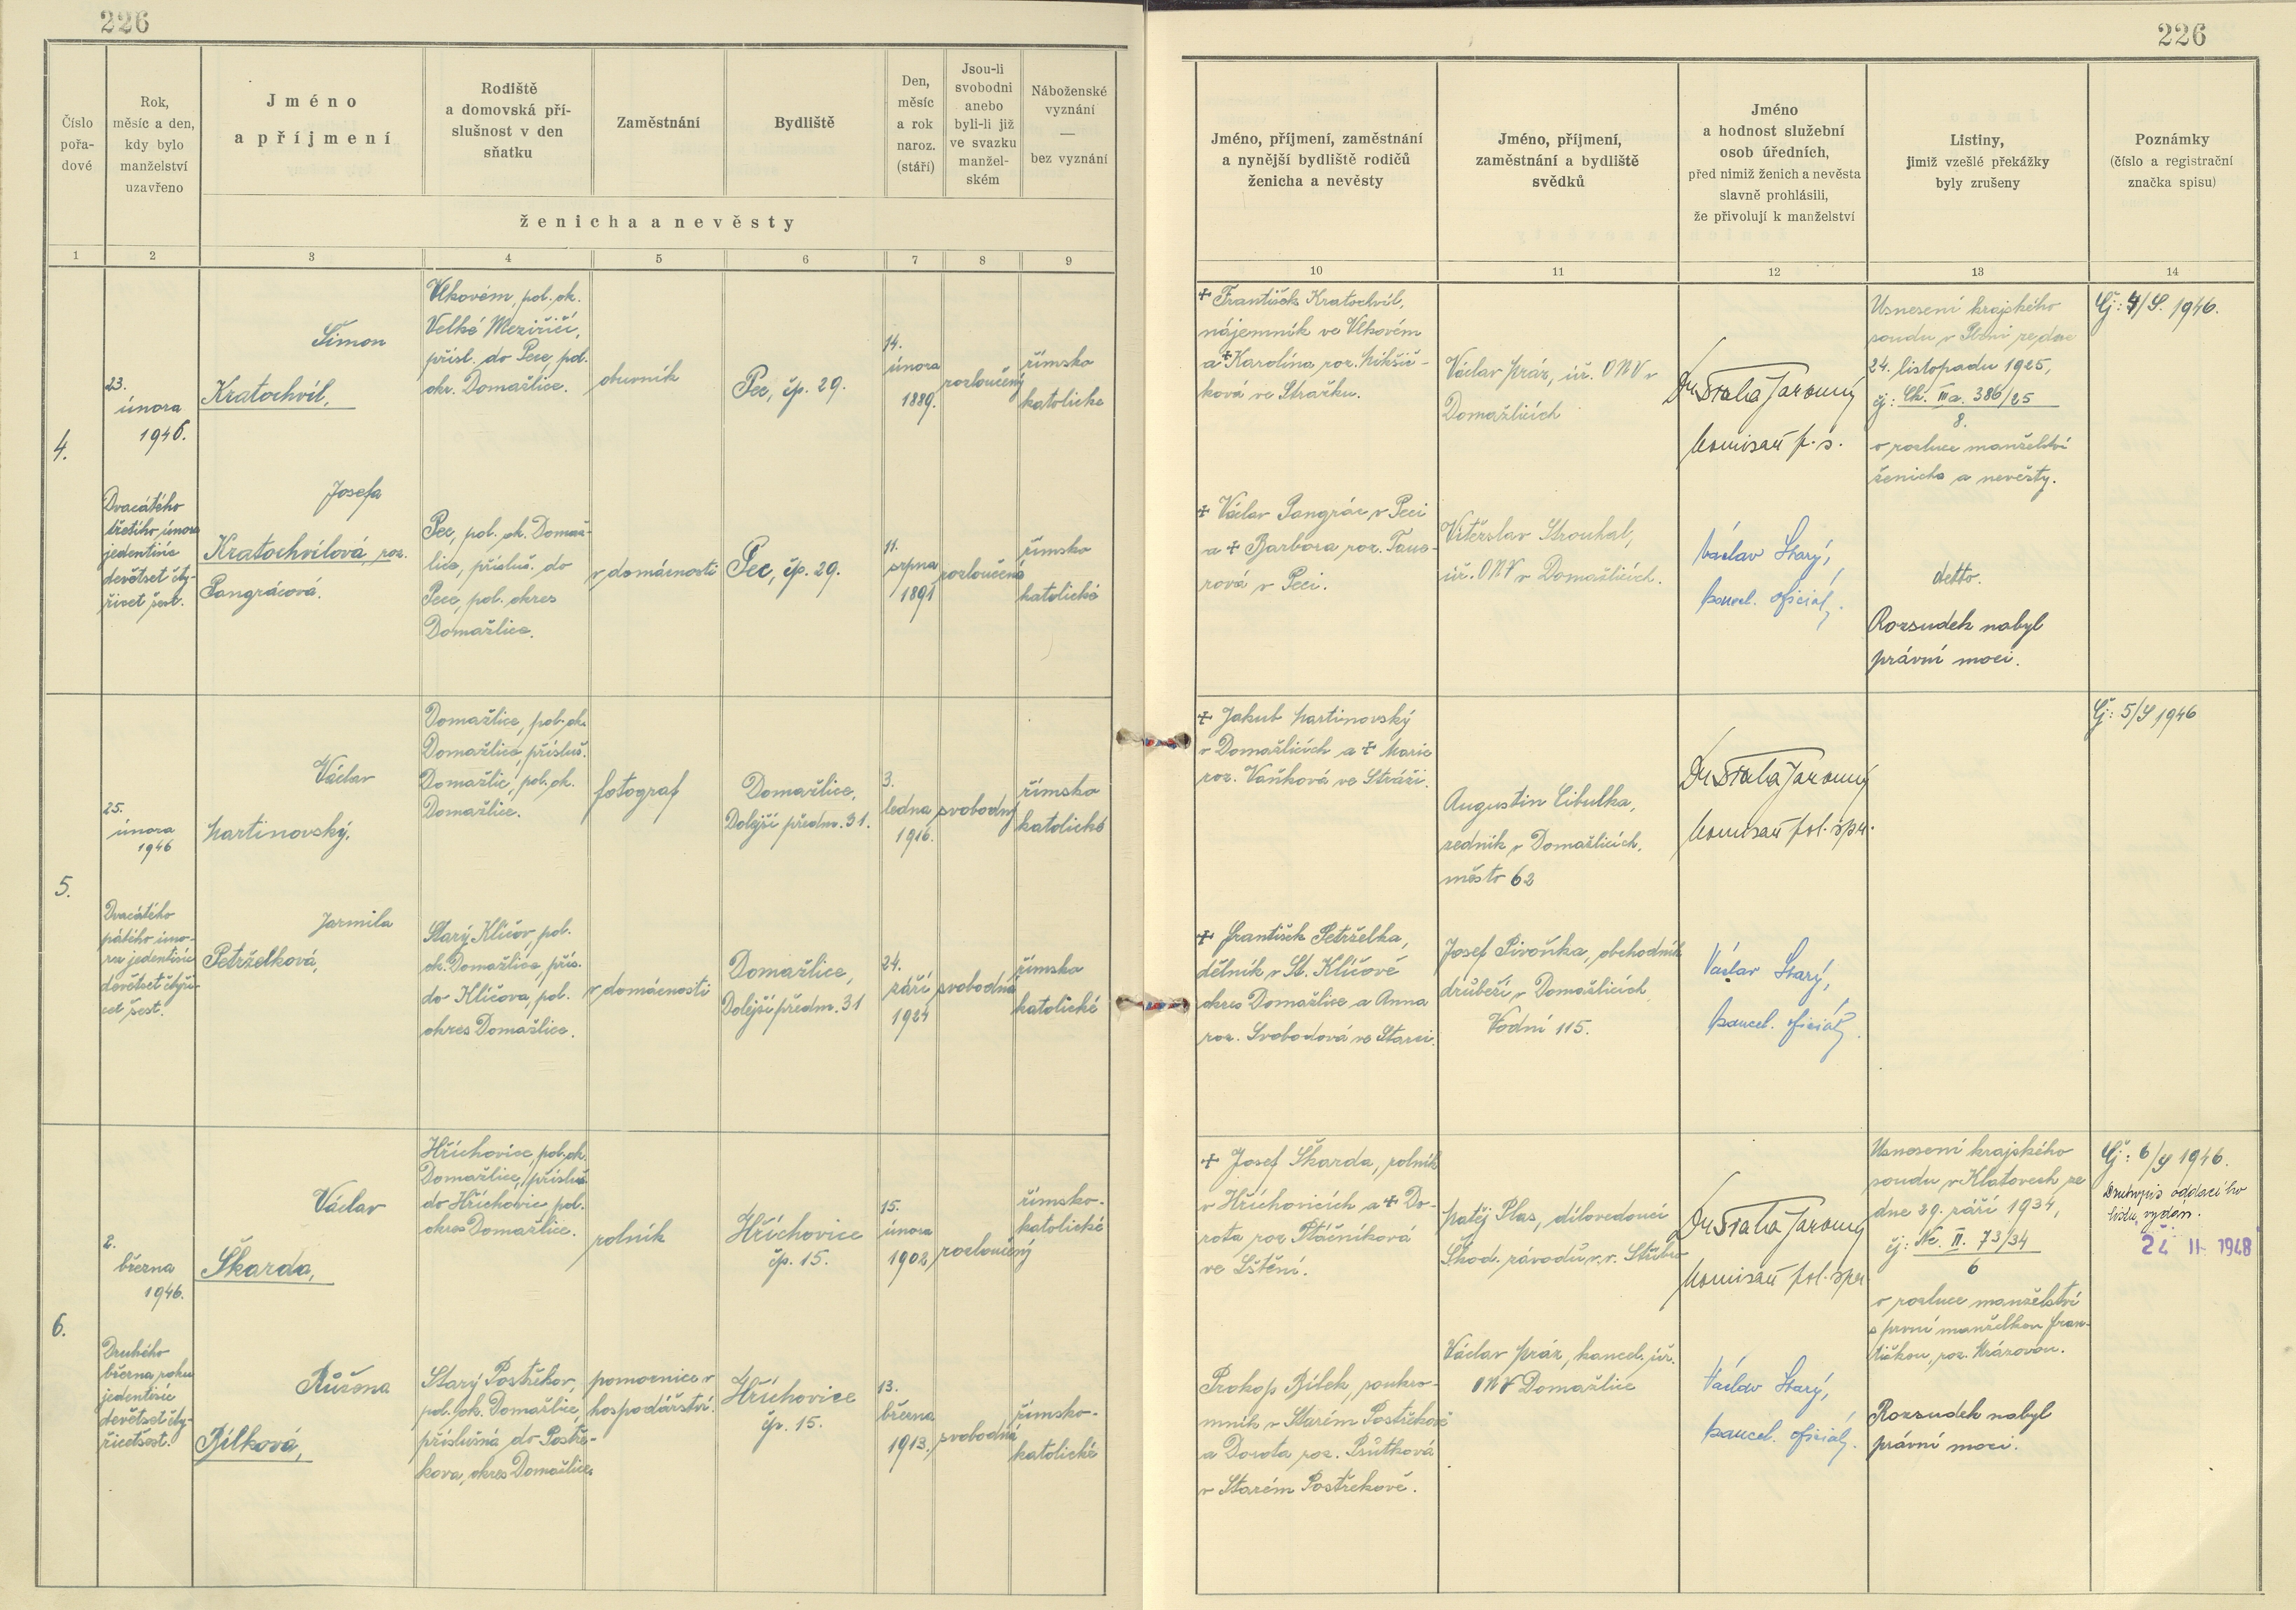 226
226
Číslo
pořa-
dové
Rok,
měsíc a den,
kdy bylo
manželství
uzavřeno
Jméno
a příjmení
Rodiště
a domovská pří-
slušnost v den
sňatku
Zaměstnání
Bydliště
Den,
měsíc
a rok
naroz.
(stáří)
Jsou-li
svobodni
anebo
byli-li již
ve svazku
manžel-
ském
Náboženské
vyznání
—
bez vyznání
ženicha a nevěsty
1 2 3 4 5 6 7 8 9
Jméno, příjmení, zaměstnání
a nynější bydliště rodičů
ženicha a nevěsty
Jméno, příjmení,
zaměstnání a bydliště
svědků
Jméno
a hodnost služební
osob úředních,
před nimiž ženich a nevěsta
slavně prohlásili,
že přivolují k manželství
Listiny,
jimiž vzešlé překážky
byly zrušeny
Poznámky
(číslo a registrační
značka spisu)
10 11 12 13 14
4.
23.
února
1946.
Dvacátého
třetího února
jedentisíc
devětset čty-
řicet šest.
Šimon
Kratochvíl,
Vlkovém, pol. ok.
Velké Meziříčí,
přísl. do Pece, pol.
okr. Domažlice.
obuvník
Pec, čp. 29.
14.
února
1889.
rozloučený
římsko
katolické
Josefa
Kratochvílová, roz.
Pangrácová.
Pec, pol. ok. Domaž-
lice, přísluš. do
Pece, pol. okres
Domažlice.
v domácnosti
Pec, čp. 29.
11.
srpna
1891
rozloučená
římsko
katolické
+ František Kratochvíl,
nájemník ve Vlkovém
a + Karolína roz. Mikšič-
ková ve Stražku.
+ Václav Pangrác v Peci
a + Barbora roz. Taus-
rová v Peci.
Václav Mráz, úř. ONV v
Domažlicích
Vítězslav Strouhal,
úř. ONV v Domažlicích.
Dr Straka Jaromír
komisař p. s.
Václav Starý,
kancel. oficiál.
Usnesení krajského
soudu v Plzni ze dne
24. listopadu 1925,
čj: Ck. IIIa. 386/25
8.
o rozluce manželství
ženicha a nevěsty.
detto.
Rozsudek nabyl
právní moci.
Čj: 4/S. 1946.
5.
25.
února
1946
Dvacátého
pátého úno-
ra jedentisíc
devětset čtyři-
cet šest.
Václav
Martinovský.
Domažlice, pol. ok.
Domažlice, přísluš.
Domažlic, pol. ok.
Domažlice.
fotograf
Domažlice,
Dolejší předm. 31.
3.
ledna
1916.
svobodný
římsko
katolické
Jarmila
Petrželková,
Starý Klíčov, pol.
ok. Domažlice, přís.
do Klíčova, pol.
okres Domažlice.
v domácnosti
Domažlice,
Dolejší předm. 31
24.
září
1924
svobodná
římsko
katolické
+ Jakub Martinovský
v Domažlicích a + Marie
roz. Vaňková ve Stráži.
+ František Petrželka,
dělník v St. Klíčově
okres Domažlice a Anna
roz. Svobodová ve Starci.
Augustin Cibulka,
zedník v Domažlicích,
město 62
Josef Pivoňka, obchodník
drůbeží v Domažlicích
Vodní 115.
Dr Straka Jaromír
komisař pol. spr.
Václav Starý,
kancel. oficiál.
Čj: 5/S 1946
6.
2.
března
1946.
Druhého
března roku
jedentisíc
devětset čty-
řicetšest.
Václav
Škarda,
Hříchovice, pol. ok.
Domažlice, přísluš.
do Hříchovic, pol.
okres Domažlice.
rolník
Hříchovice
čp. 15.
15.
února
1902,
rozloučený
římsko-
katolické
Růžena
Bílková,
Starý Postřekov,
pol. ok. Domažlice,
příslušná do Postře-
kova, okres Domažlice.
pomocnice v
hospodářství.
Hříchovice
čp. 15.
13.
března
1913.
svobodná
římsko-
katolické
+ Josef Škarda, rolník
v Hříchovicích a + Do-
rota roz. Ptáčníková
ve Lštění.
Prokop Bílek, soukro-
mník v Starém Postřekově
a Dorota roz. Průtková
v Starém Postřekově.
Matěj Plas, dílovedoucí
Škod. závodů v. v. Stříbro
Václav Mráz, kancel. úř.
ONV Domažlice
Dr Straka Jaromír
komisař pol. spr.
Václav Starý,
kancel. oficiál.
Usnesení krajského
soudu v Klatovech ze
dne 29. září 1934,
čj: Nc. II. 73/34
6
o rozluce manželství
s první manželkou Fran-
tiškou, roz. Královou.
Rozsudek nabyl
právní moci.
Čj: 6/S 1946.
Druhopis oddacího
listu vydán.
24 II. 1948